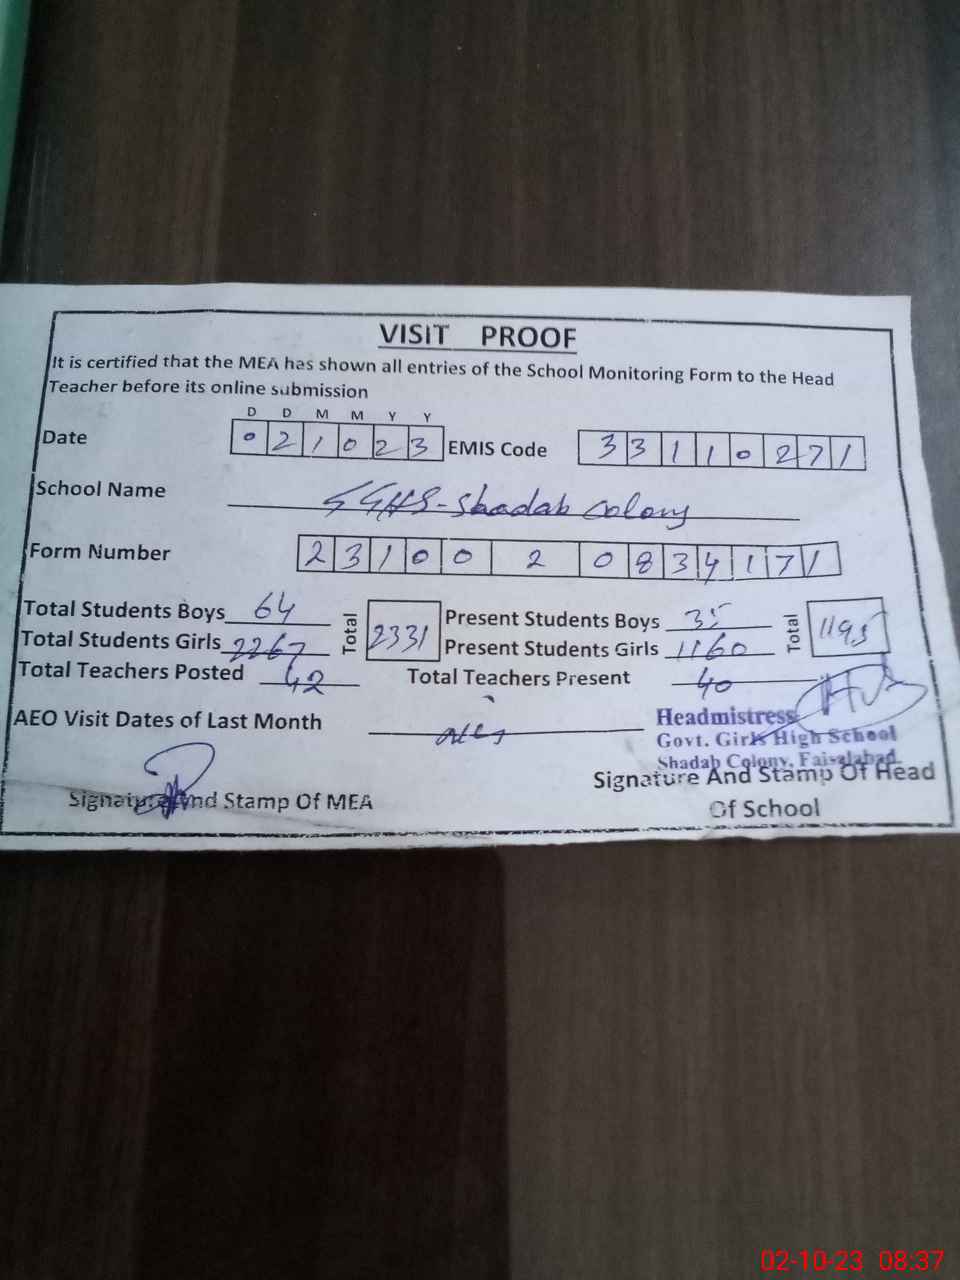 VISIT PROOF
It is certified that the MEA has shown all entries of the School Monitoring Form to the Head
Teacher before its online submission
D D M M Y Y
Date 0 2 1 0 2 3 EMIS Code 3 3 1 1 0 2 7 1
School Name GGHS-Shadab Colony
Form Number 2 3 1 0 0 2 0 8 3 4 1 7 1
Total Students Boys 64 Total 2331 Present Students Boys 35 Total 1195
Total Students Girls 2267 Present Students Girls 1160
Total Teachers Posted 42 Total Teachers Present 40
AEO Visit Dates of Last Month
Headmistress
Govt. Girls High School
Shadab Colony, Faisalabad
Signature And Stamp Of MEA
Signature And Stamp Of Head
Of School
02-10-23 08:37